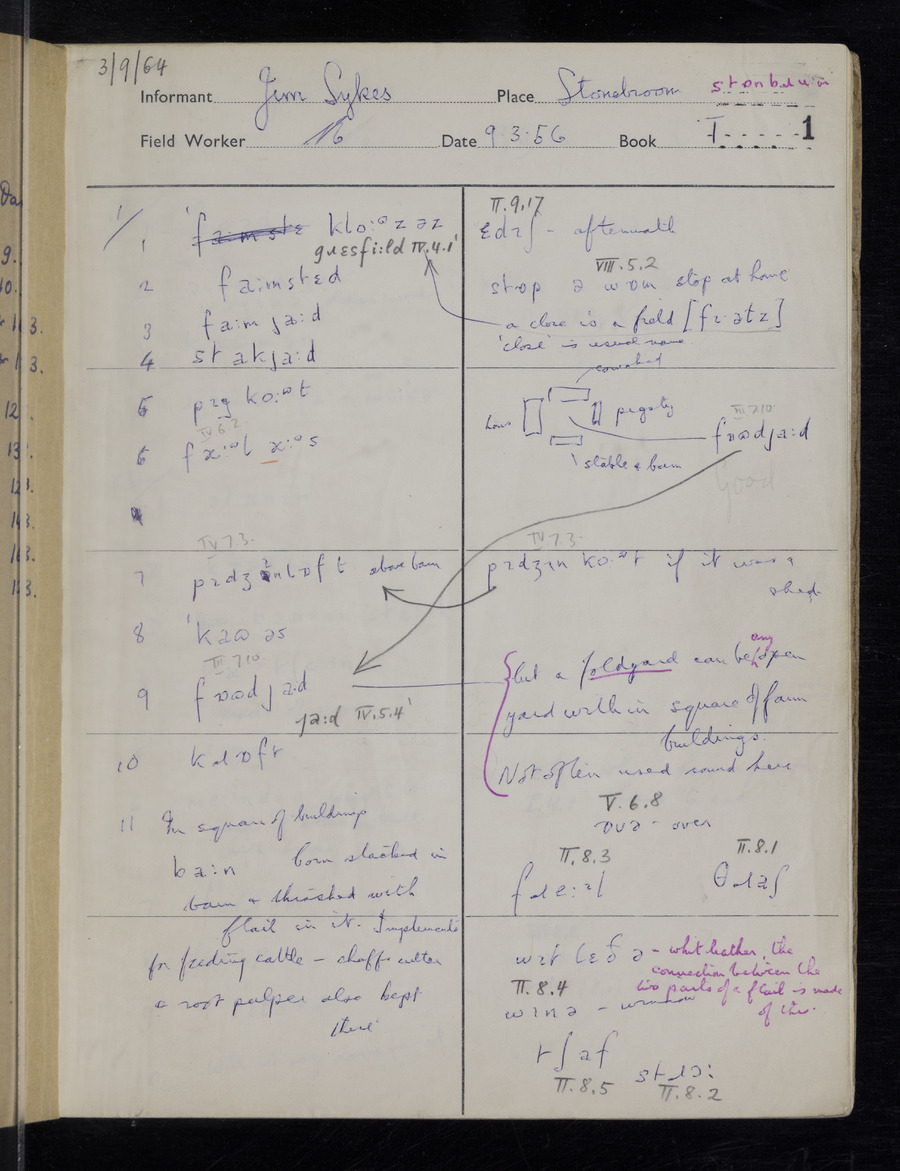 3/9/64
Informant Jim Sykes Place Stonebroom
Field Worker Date 9.3.56 Book I 1
1/
1 klo:ᵊzəz
gɹɛsfi:ld IV.4.1
2 fa:msted
3 fa:m ja:d
4 stakja:d
5 pɪg ko:ʷt
IV.6.2
6
7 above barn
IV.7.3.
8
III.7.10
9 fɒʊdja:d
ja:d IV.5.4
10 kɹɒft
11 In square of buildings
ba:n corn stacked in
barn & thrashed with
flail in it. Implements
for feeding cattle – chaff cutter
& root pulper also kept
there
II.9.17
ɛdɪʃ - aftermath
VIII.5.2
stɒp ə wɒm stop at home
a close is a field
'close' is usual name
cowshed
house
pigsty
stable & barn
III.7.10
fɒʊdja:d
Good
IV.7.3.
pɪdʒɪn ko:ʷt if it was a
shed.
but a foldyard can be any open
yard within square of farm
buildings.
Not often used round here
V.6.8
ɒvə - over
II.8.3
II.8.1
θɹaʃ
wɪt lɛðə - whit leather, the
connection between the
two parts of a flail is made
of this.
II.8.4
wɪnə - winnow
tʃaf
II.8.5
stɹɔ:
II.8.2